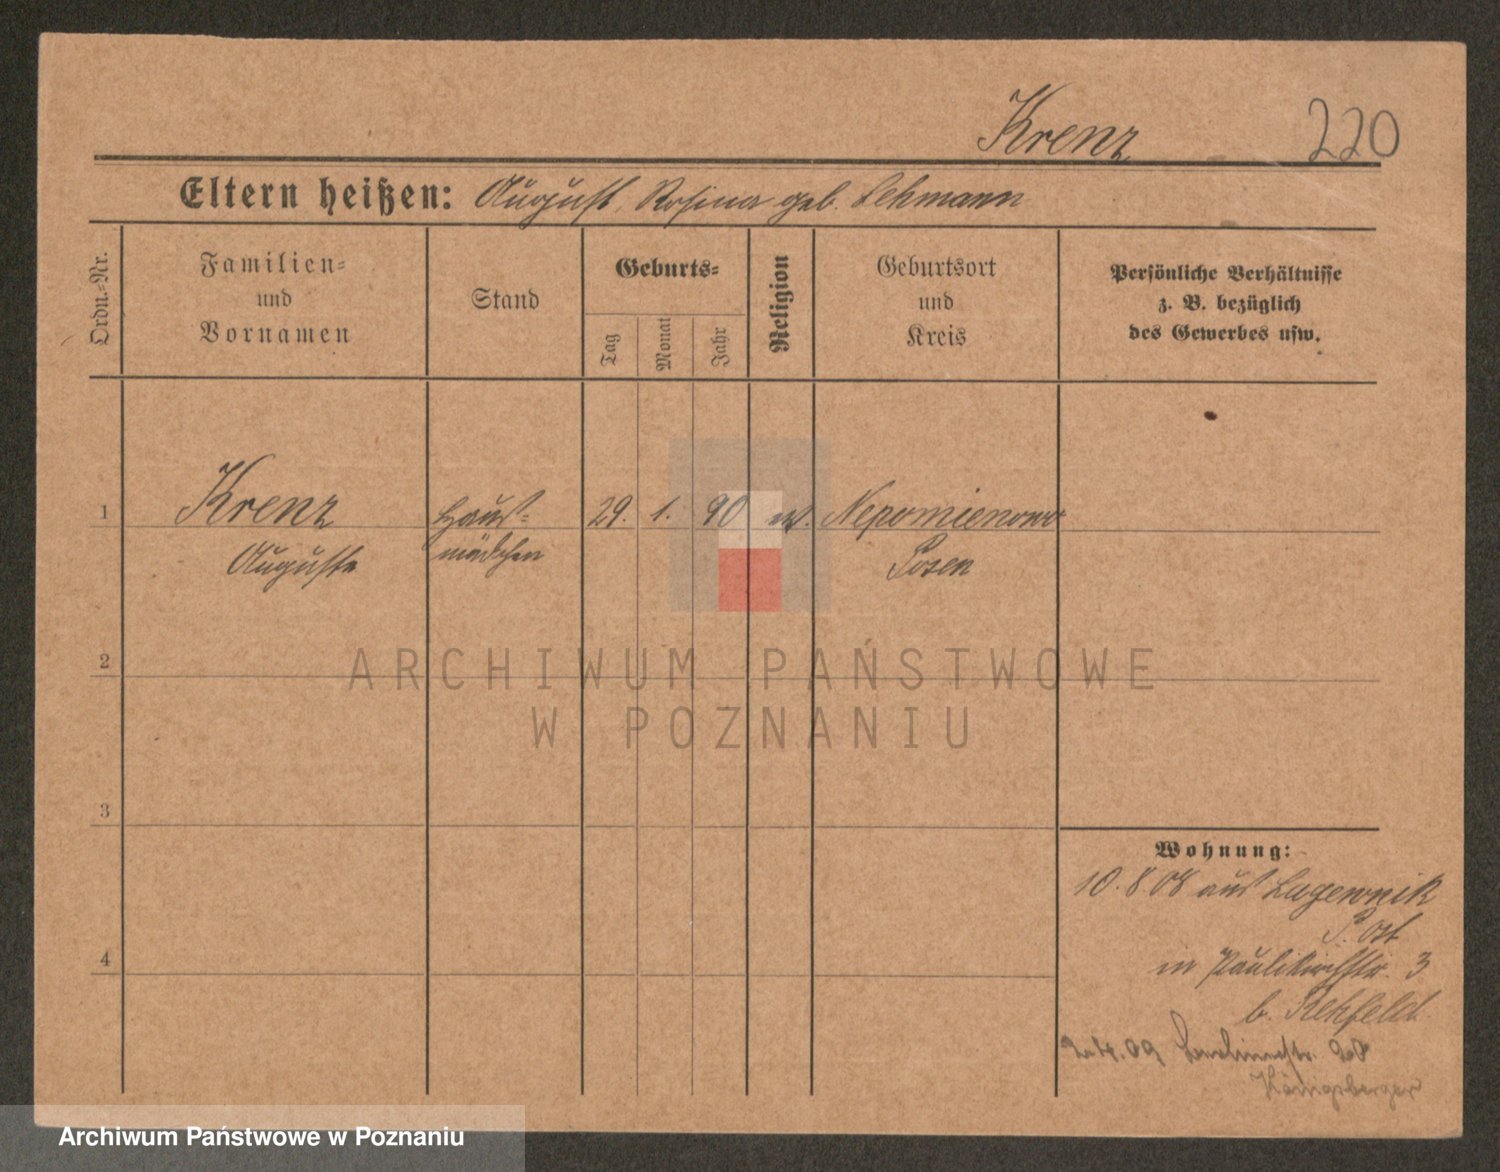 Krenz 220
Eltern heißen: August, Rosina geb. Lehmann
Ordn.-Nr.
Familien-
und
Vornamen
Stand
Geburts-
Tag
Monat
Jahr
Religion
Geburtsort
und
Kreis
Persönliche Verhältnisse
z. B. bezüglich
des Gewerbes usw.
1 Krenz Haus- 29. 1. 90 ev. Nepomienowo
Auguste mädchen Posen
2
3
4
Wohnung:
10.8.08 aus Lagewnik
P. Ost
in Paulikirchstr. 3
b. Rehfeld
Königsberger
ARCHIWUM PAŃSTWOWE
W POZNANIU
Archiwum Państwowe w Poznaniu